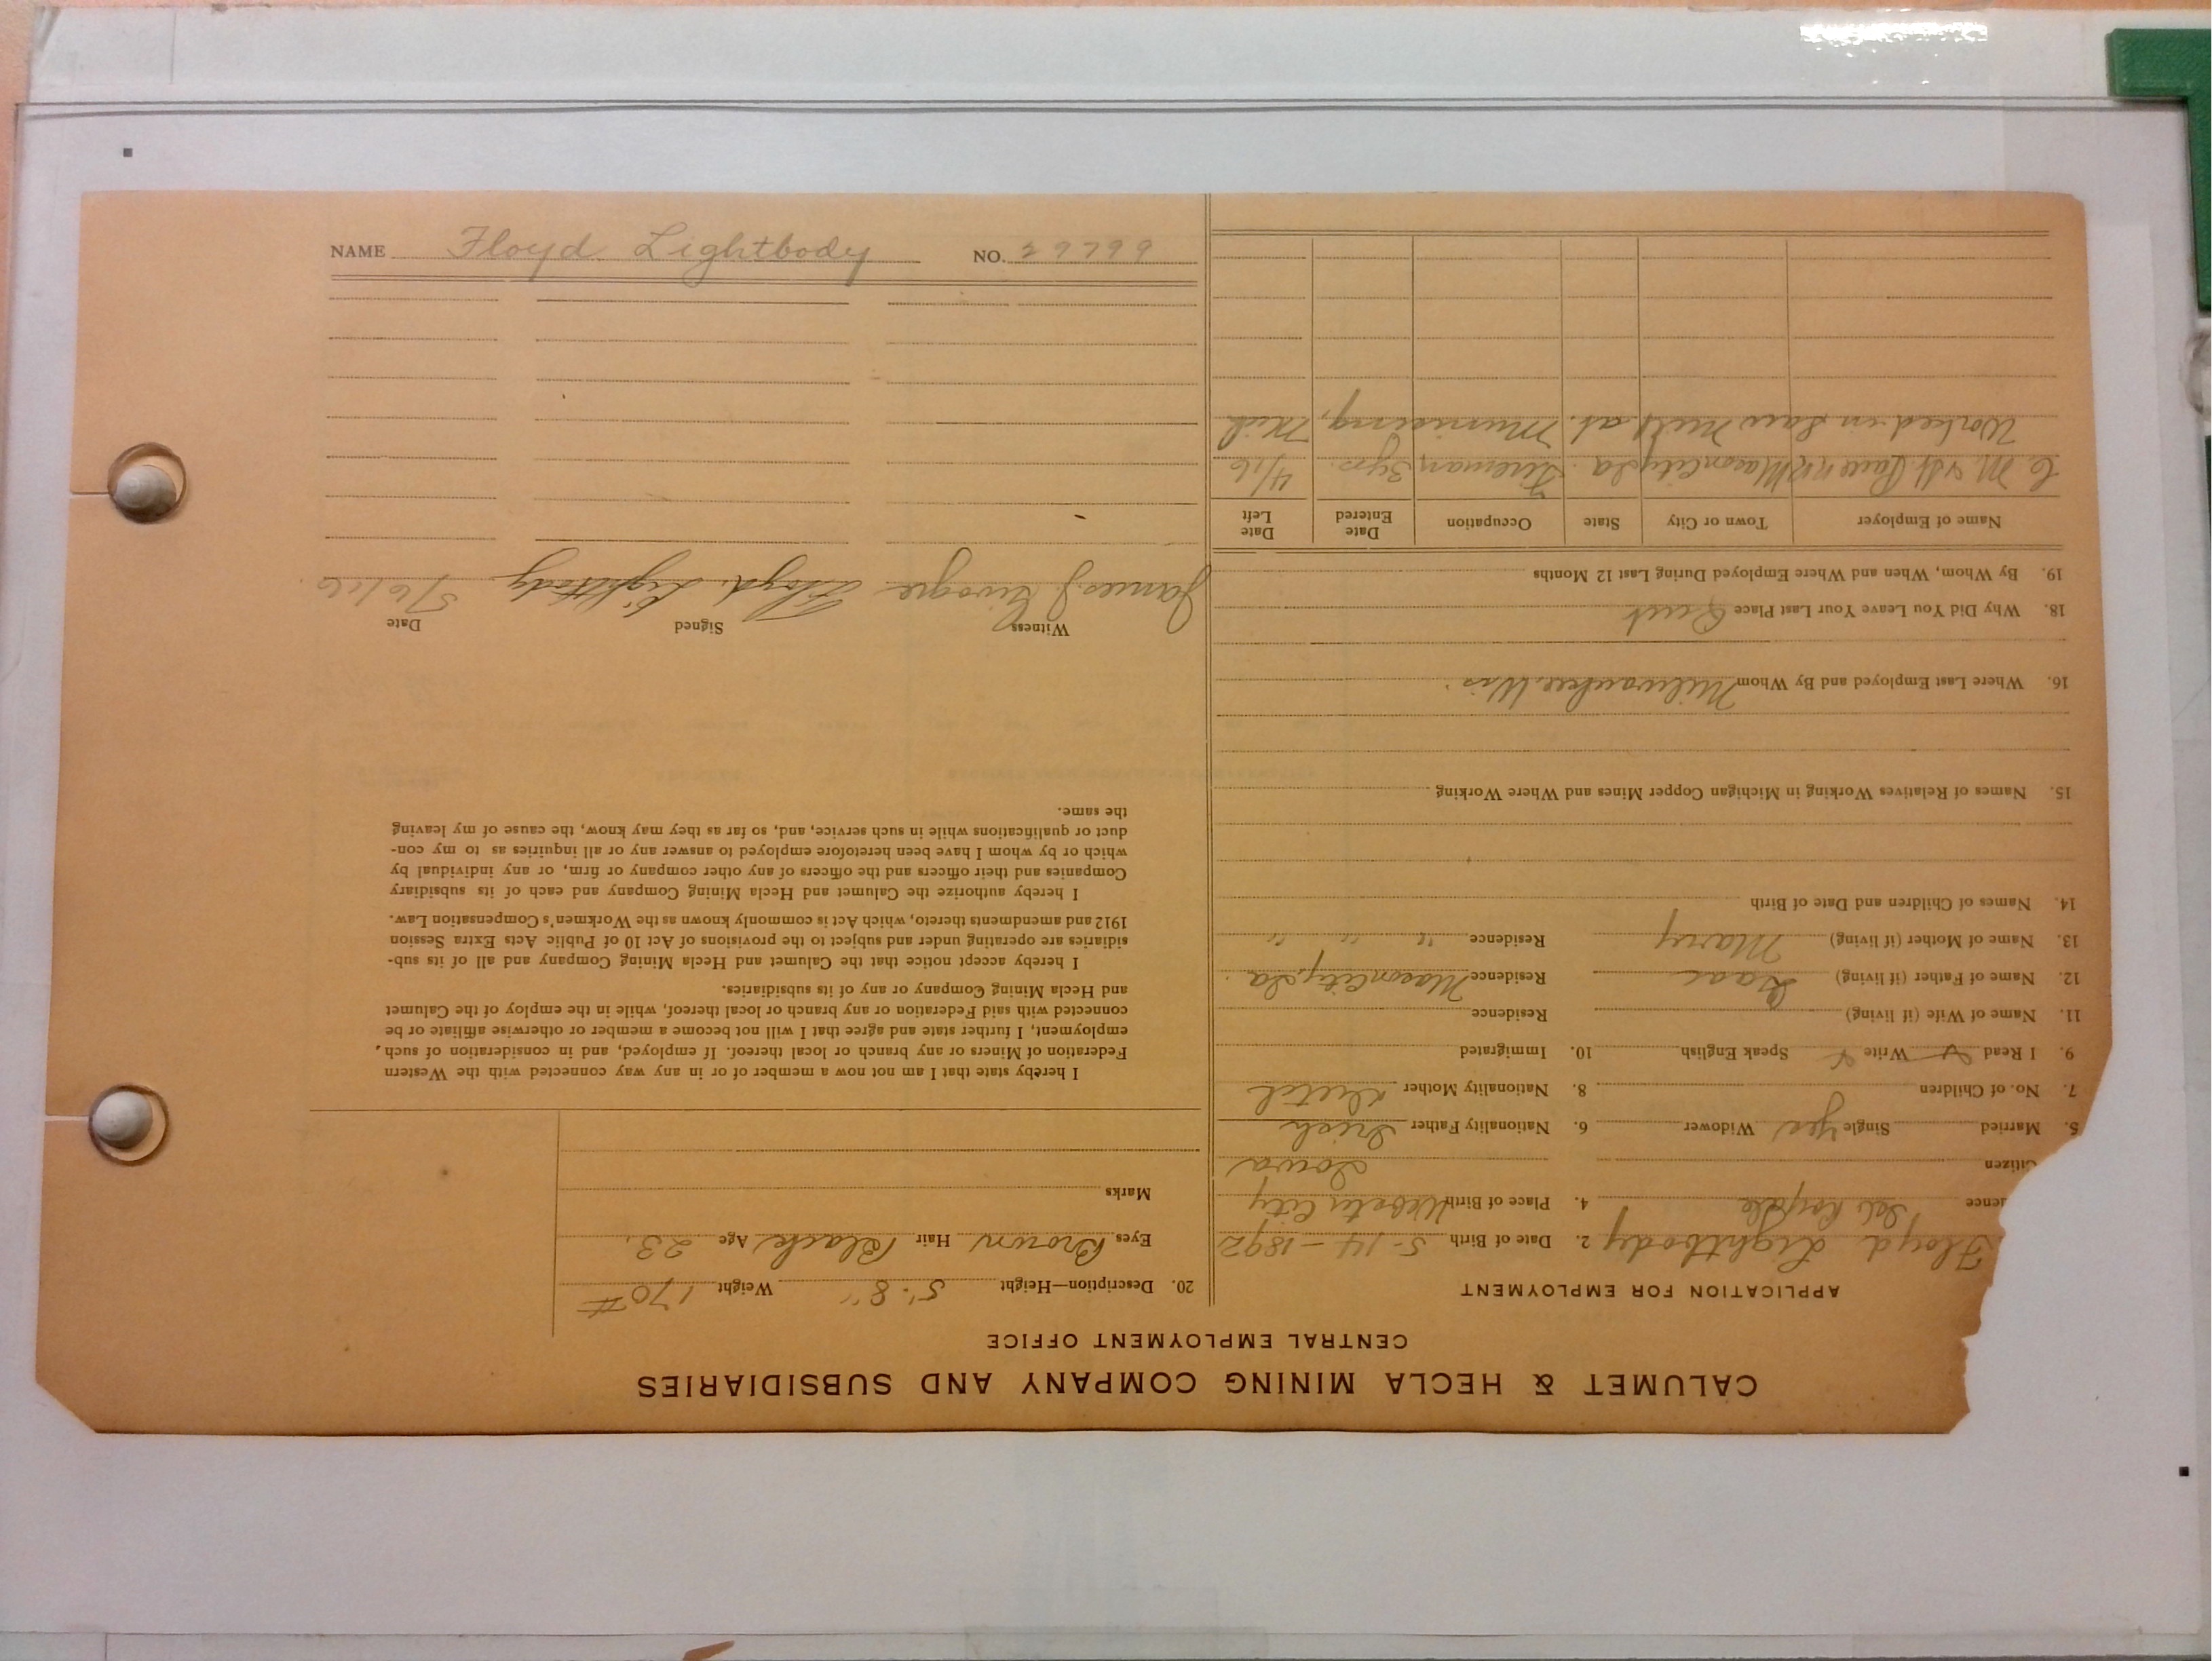 CALUMET & HECLA MINING COMPANY AND SUBSIDIARIES
CENTRAL EMPLOYMENT OFFICE
APPLICATION FOR EMPLOYMENT
Floyd Lightbody 2. Date of Birth 5-14-1892
ence 4. Place of Birth Webster City
Citizen Iowa
5. Married Single Yes Widower 6. Nationality Father Irish
7. No. of Children 8. Nationality Mother Dutch
9. I Read Write Speak English 10. Immigrated
11. Name of Wife (if living) Residence
12. Name of Father (if living) Isaac Residence Mason City, Ia.
13. Name of Mother (if living) Mary Residence " " "
14. Names of Children and Date of Birth
15. Names of Relatives Working in Michigan Copper Mines and Where Working
16. Where Last Employed and By Whom Milwaukee, Wis.
18. Why Did You Leave Your Last Place Quit
19. By Whom, When and Where Employed During Last 12 Months
Name of Employer Town or City State Occupation Date Entered Date Left
C M & St. Paul Mason City Ia. Fireman 3 yrs. 4/16
Worked in Saw Mill at. Munising, Mich
20. Description—Height 5'. 8" Weight 170 #
Eyes Brown Hair Black Age 23.
Marks
I hereby state that I am not now a member of or in any way connected with the Western
Federation of Miners or any branch or local thereof. If employed, and in consideration of such
employment, I further state and agree that I will not become a member or otherwise affiliate or be
connected with said Federation or any branch or local thereof, while in the employ of the Calumet
and Hecla Mining Company or any of its subsidiaries.
I hereby accept notice that the Calumet and Hecla Mining Company and all of its sub-
sidiaries are operating under and subject to the provisions of Act 10 of Public Acts Extra Session
1912 and amendments thereto, which Act is commonly known as the Workmen's Compensation Law.
I hereby authorize the Calumet and Hecla Mining Company and each of its subsidiary
Companies and their officers and the officers of any other company or firm, or any individual by
which or by whom I have been heretofore employed to answer any or all inquiries as to my con-
duct or qualifications while in such service, and, so far as they may know, the cause of my leaving
the same.
Witness Signed Date
James J. Floyd. Lightbody 5/6/16
NAME Floyd Lightbody NO. 29799